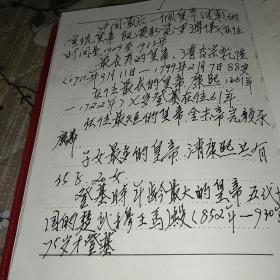 中国最后一个皇帝清朝的
宣统皇帝
时间是1909至1911年
最长寿的皇帝，清高宗乾隆
(1711年9月11日—1799年2月7日88岁
在位最长的皇帝康熙1661年
—1722年)父岁登基在位61年
在位最短的皇帝金末帝完颜承
麟
子女最多的皇帝，清康熙共有
35子，20女
登基时年龄最大的皇帝五代
国的楚武穆王马殷(852年—930
75岁才登基